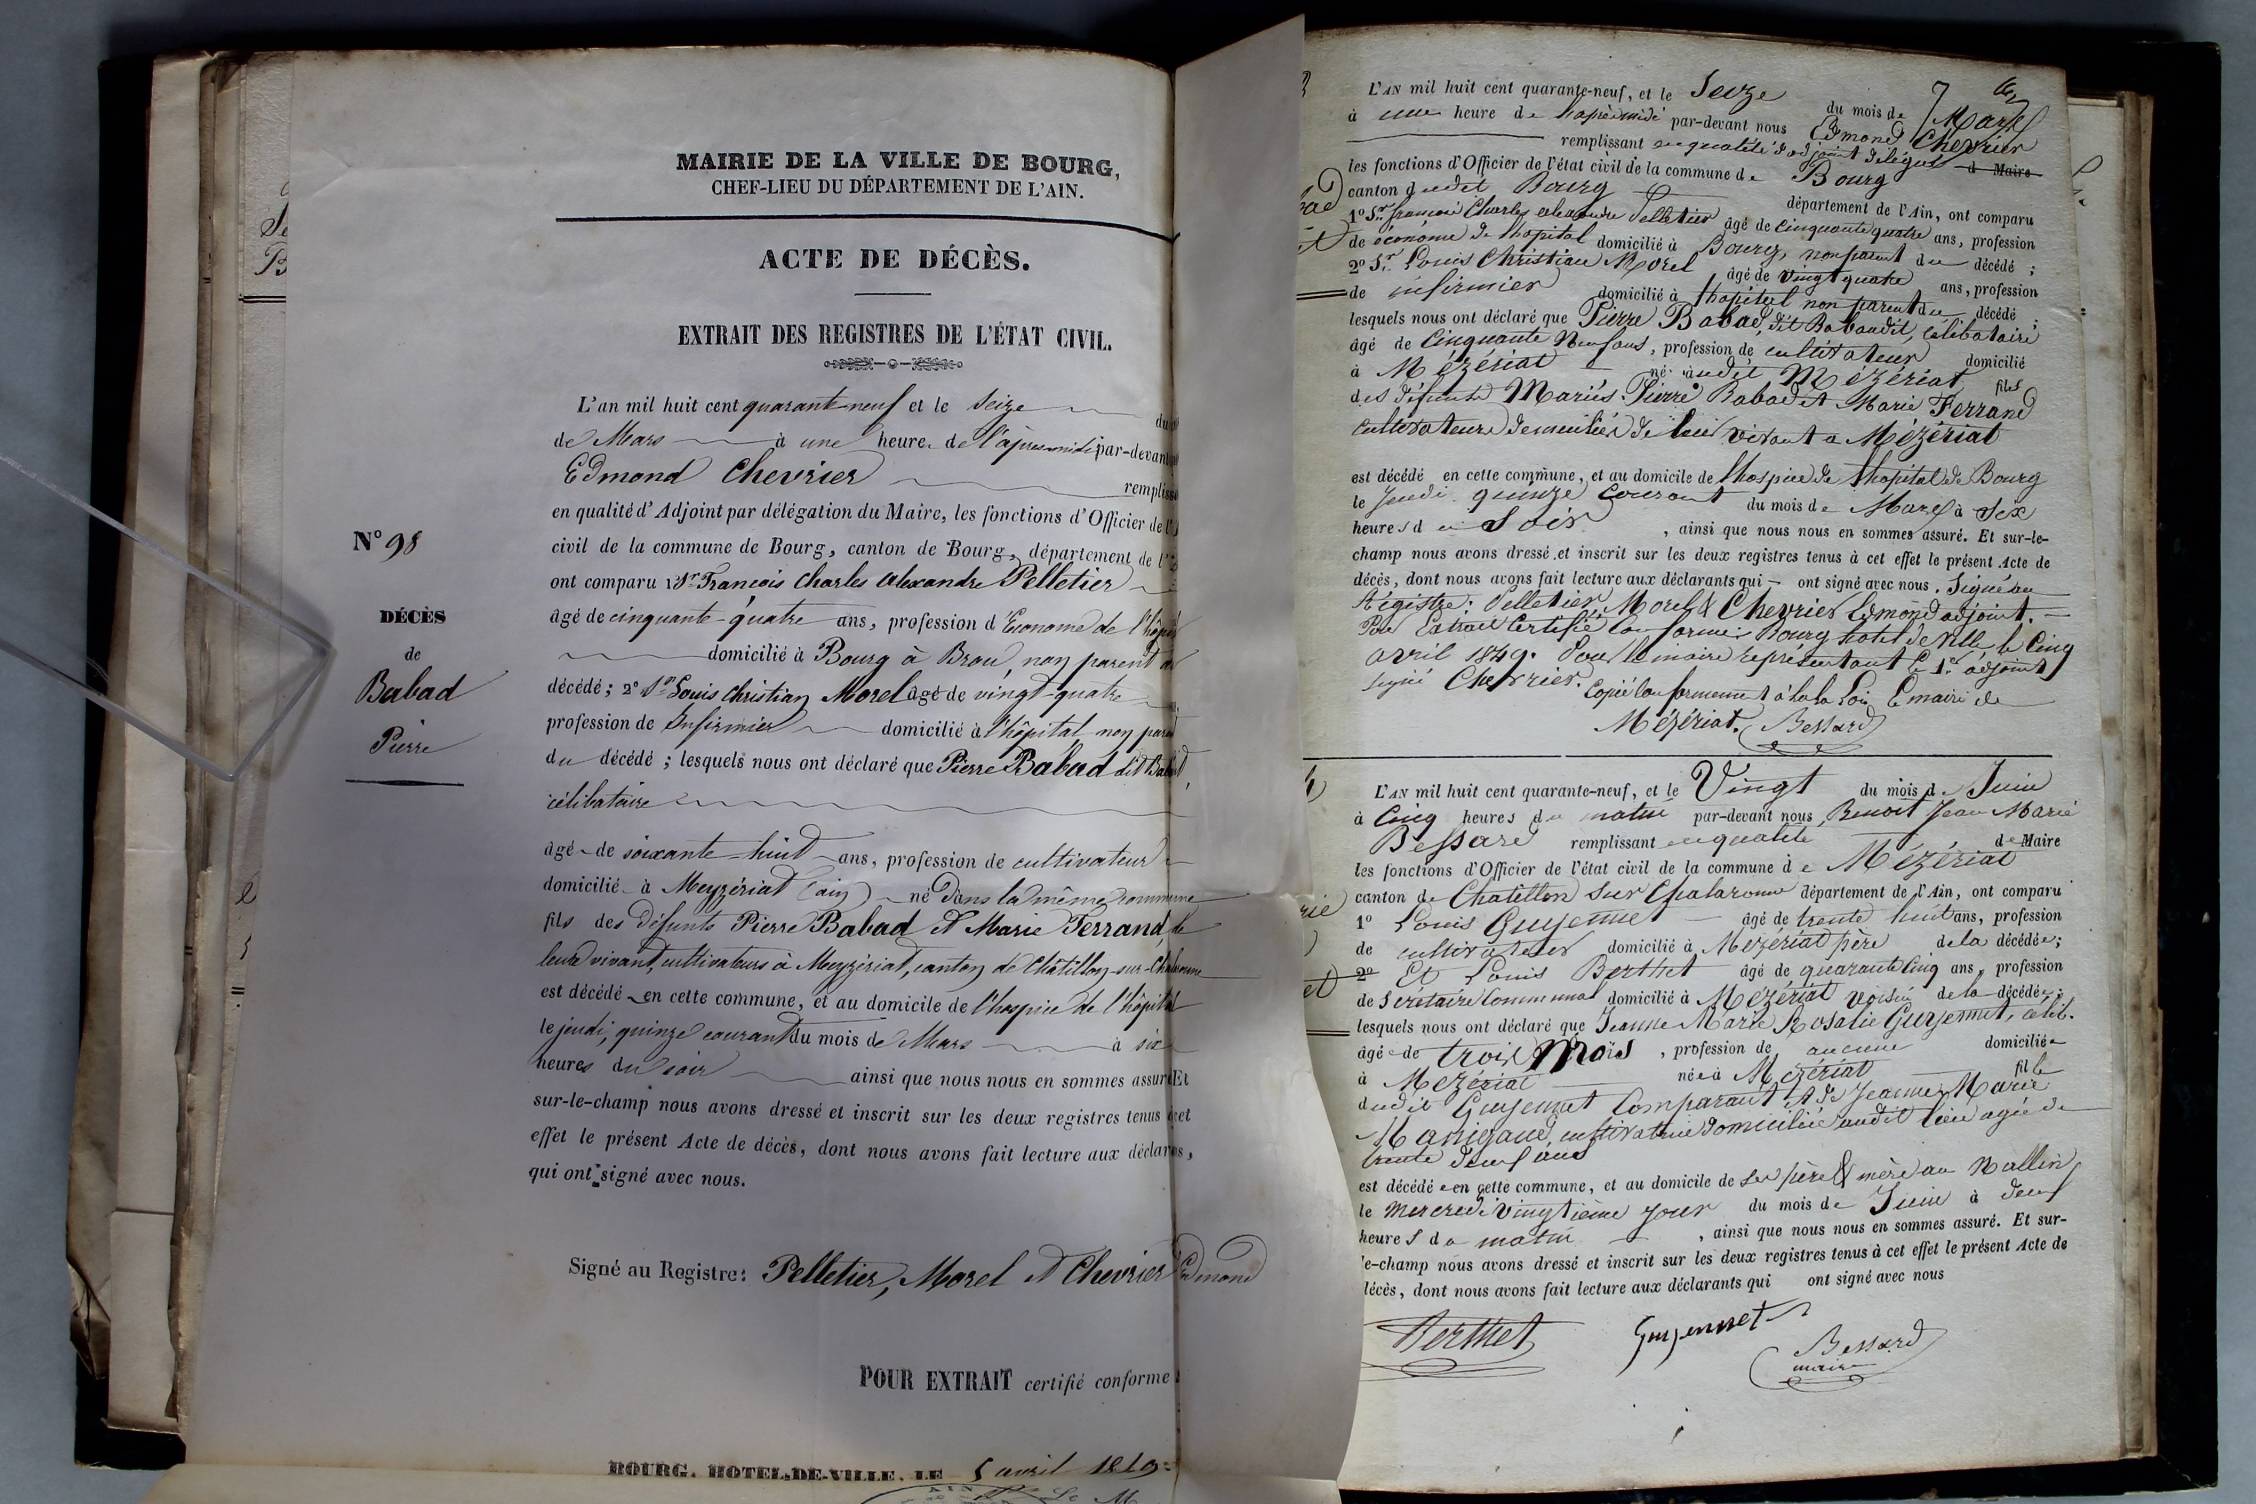 MAIRIE DE LA VILLE DE BOURG,
CHEF-LIEU DU DÉPARTEMENT DE L'AIN.
ACTE DE DÉCÈS.
EXTRAIT DES REGISTRES DE L'ÉTAT CIVIL.
N° 98
DÉCÈS
de
Babad
Pierre
L'an mil huit cent quarante-neuf et le seize du
de Mars à une heure de l'après-midi par-devant
Edmond Chevrier
en qualité d'Adjoint par délégation du Maire, les fonctions d'Officier de l'
civil de la commune de Bourg, canton de Bourg, département de l'
ont comparu 1° Sr. François Charles Alexandre Pelletier
âgé de cinquante-quatre ans, profession d'Econome de l'hôpital
domicilié à Bourg à Brou, non parent du
décédé ; 2° Sr. Louis Christian Morel âgé de vingt-quatre
profession de Infirmier domicilié à l'hôpital non parent
du décédé ; lesquels nous ont déclaré que Pierre Babad dit
célibataire
âgé de soixante-huit ans, profession de cultivateur
domicilié à Meyzériat (ain) né dans la même commune
fils des défunts Pierre Babad et Marie Ferrand, de
leur vivant, cultivateurs à Meyzériat, canton de Châtillon-sur-Chalaronne
est décédé en cette commune, et au domicile de l'hospice de l'hôpital
le jeudi, quinze courant du mois de Mars à six
heures du soir ainsi que nous nous en sommes assuré Et
sur-le-champ nous avons dressé et inscrit sur les deux registres tenus à cet
effet le présent Acte de décès, dont nous avons fait lecture aux déclarans,
qui ont signé avec nous.
Signé au Registre: Pelletier, Morel et Chevrier Edmond
POUR EXTRAIT certifié conforme :
BOURG, HOTEL-DE-VILLE, LE 5 avril 1849
AIN
L'AN mil huit cent quarante-neuf, et le Seize du mois de Mars
à une heure de l'aprèsmidi par-devant nous Edmond Chevrier
remplissant en qualité d'adjoint délégué d Maire
les fonctions d'Officier de l'état civil de la commune de Bourg
canton dudit Bourg département de l'Ain, ont comparu
1° Sr. françois Charles alexandre Pelletier âgé de Cinquante quatre ans, profession
de économe de l'hopital domicilié à Bourg, non parent du décédé ;
2° Sr. Louis Christian Morel âgé de vingt quatre ans, profession
de infirmier domicilié à l'hôpital non parent du décédé ;
lesquels nous ont déclaré que Pierre Babad, dit Babaudit, Célibataire
âgé de Cinquante Neuf ans, profession de cultivateur domicilié
à Mézériat né audit Mézériat fils
des défunts Mariés Pierre Babad et Marie Ferrand
cultivateurs domiciliés de leur vivant à Mézériat
est décédé en cette commune, et au domicile de l'hospice de l'hopital de Bourg
le Jeudi quinze courant du mois de Mars à Six
heures du Soir, ainsi que nous nous en sommes assuré. Et sur-le-
champ nous avons dressé et inscrit sur les deux registres tenus à cet effet le présent Acte de
décès, dont nous avons fait lecture aux déclarants qui ont signé avec nous. Signé au
Régistre: Pelletier, Morel & Chevrier Edmond adjoint.
Pour Extrait Certifié Conforme Bourg hotel de Ville le Cinq
avril 1849. Pour le maire représentant le 1er adjoint
signé Chevrier. Copié Conformement à la Loi Le maire de
Mézériat. Bessard
L'AN mil huit cent quarante-neuf, et le Vingt du mois de Juin
à Cinq heures du matin par-devant nous, Benoit Jean Marie
Bessard remplissant en qualité de Maire
les fonctions d'Officier de l'état civil de la commune de Mézériat
canton de Chatillon sur Chalaronne département de l'Ain, ont comparu
1° Louis Guyennet âgé de trente huit ans, profession
de cultivateur domicilié à Mezériat père de la décédée ;
2° Et Louis Berthet âgé de quarante Cinq ans, profession
de Secrétaire Communal domicilié à Mezériat voisin de la décédée ;
lesquels nous ont déclaré que Jeanne Marie Rosalie Guyennet, célib.
âgée de trois Mois, profession de aucune domiciliée
à Mezériat née à Mézériat fille
dudit Guyennet Comparant, & de Jeanne Marie
Manigand, cultivatrice domiciliée audit lieu agée de
trente deux ans
est décédée en cette commune, et au domicile de ses père & mère au
le Mercredi vingtième jour du mois de Juin à deux
heures du matin, ainsi que nous nous en sommes assuré. Et sur-
le-champ nous avons dressé et inscrit sur les deux registres tenus à cet effet le présent Acte de
décès, dont nous avons fait lecture aux déclarants qui ont signé avec nous
Berthet Guyennet Bessard
maire